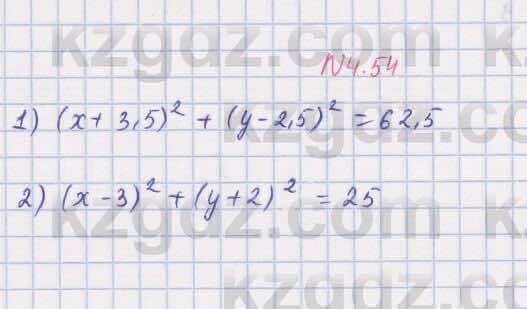 kzgdz.com
N4.54
1) (x + 3,5)² + (y - 2,5)² = 62,5
2) (x - 3)² + (y + 2)² = 25
kzgdz.com